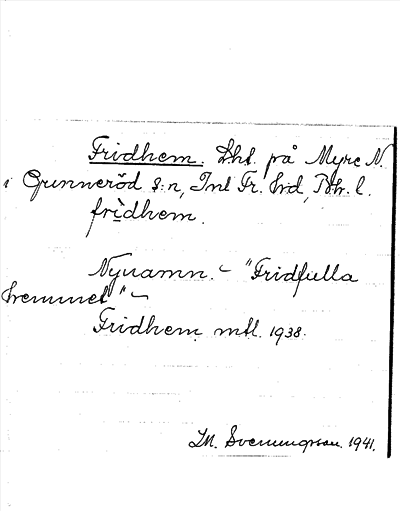 Fridhem. Lht. på Myre N.
i Grinneröd s:n, Inl Fr. hd, Boh. l.
frìdhem.
Nynamn. – "Fridfulla
hemmet" –
Fridhem mtl. 1938.
M. Svenungsson. 1941.